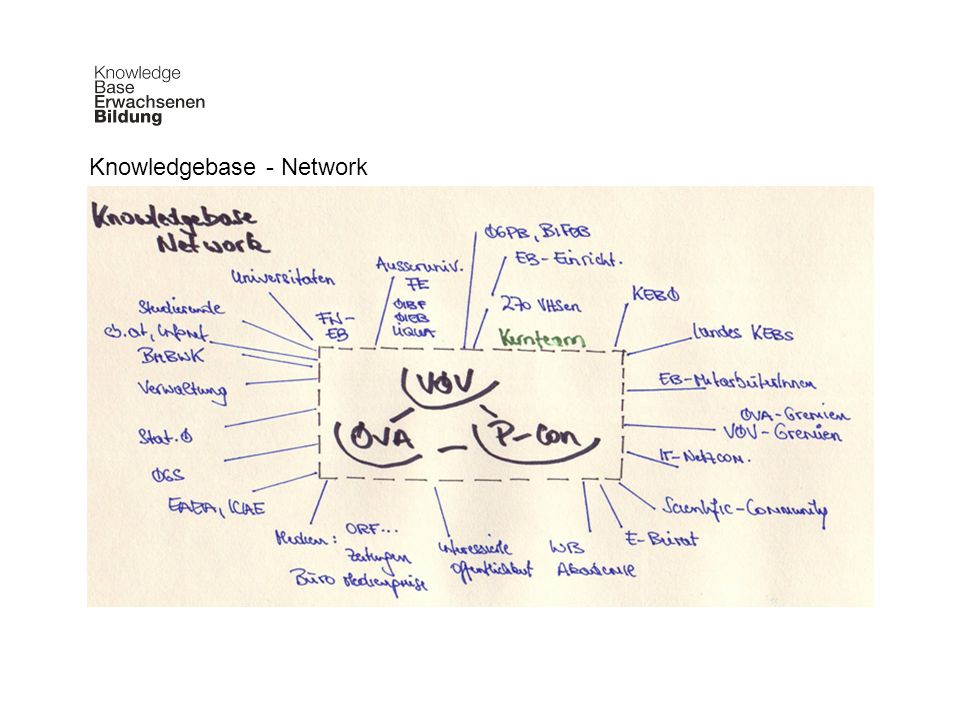 Knowledge
Base
Erwachsenen
Bildung
Knowledgebase - Network
Knowledgebase
Network
Universitäten
Ausseruniv.
FE
ÖIBF
ÖIEB
LIQUA
ÖGPB, BIFEB
EB-Einricht.
270 VHSen
KEBÖ
Studierende
FN-
EB
Kernteam
Landes KEBS
BMBWK
EB-MitarbeiterInnen
Verwaltung
VÖV
ÖVA-Gremien
VÖV-Gremien
Stat.Ö
ÖVA - P-Con
IT-Netzcom.
ÖGS
EAEA, ICAE
Scientific-Community
Medien: ORF...
Zeitungen
Büro Medienpreise
Interessierte
Öffentlichkeit
WB
Akademie
E-Beirat